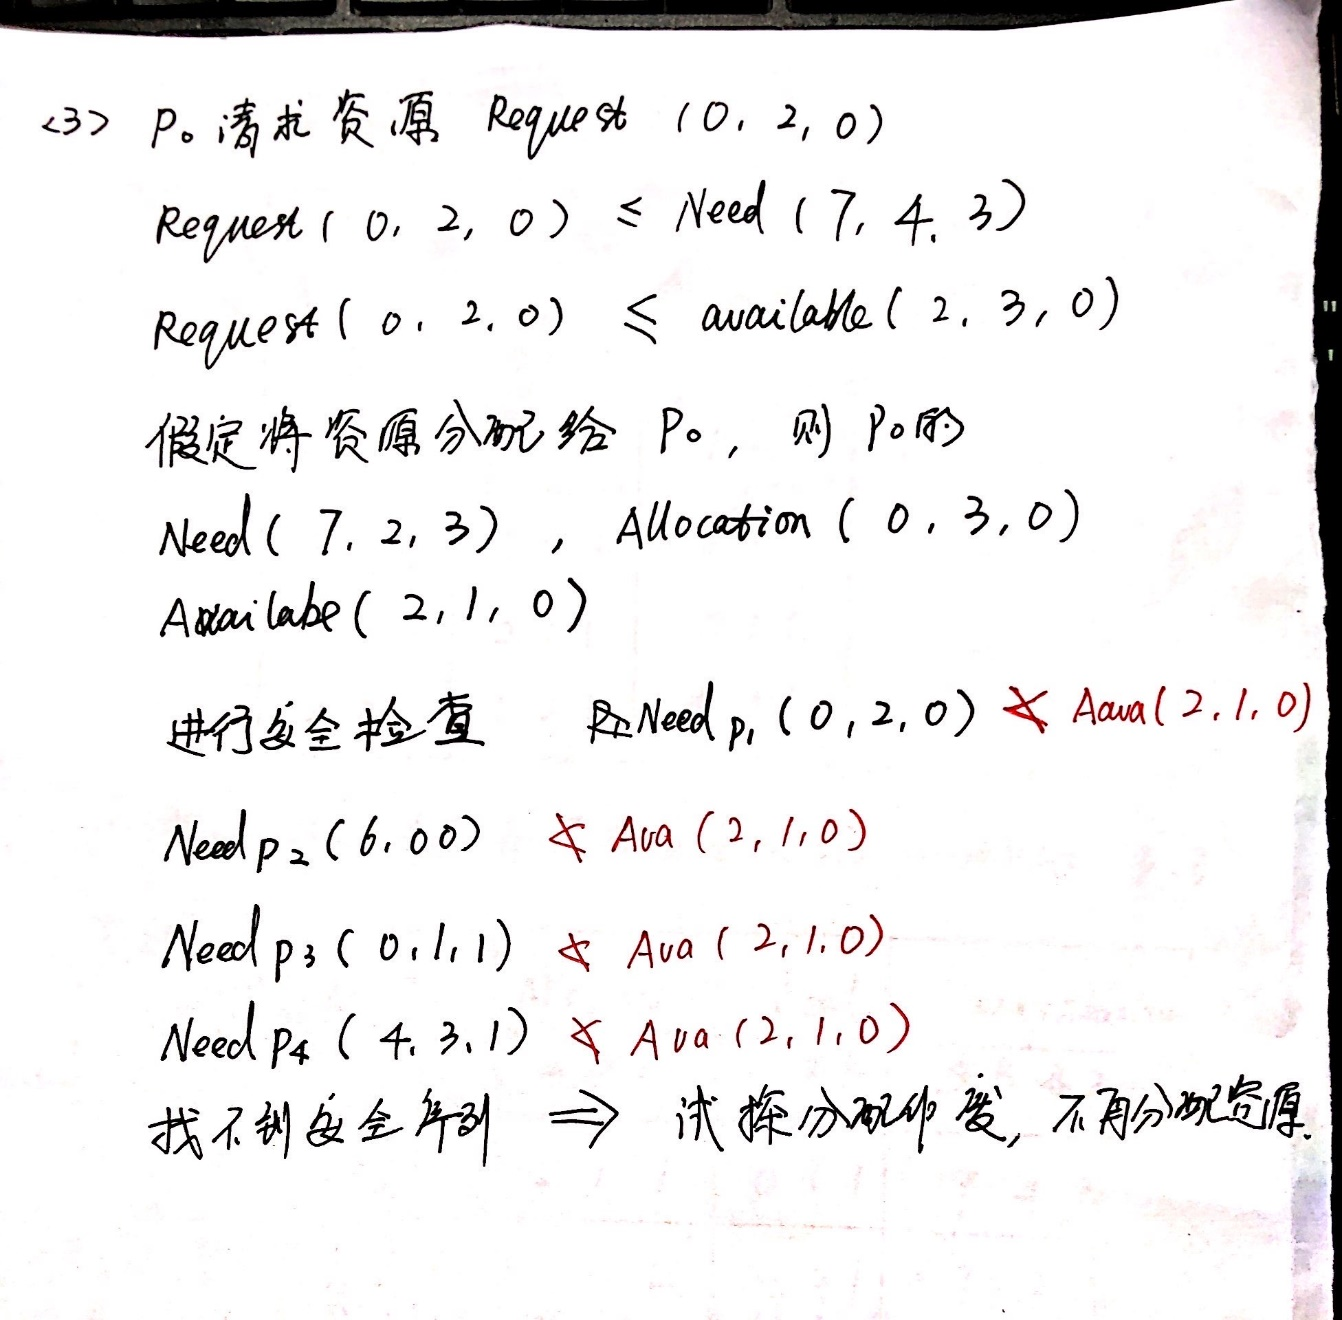 <3> P₀请求资源 Request (0, 2, 0)
Request ( 0, 2, 0) ≤ Need ( 7, 4, 3)
Request ( 0, 2, 0) ≤ available ( 2, 3, 0)
假定将资源分配给 P₀, 则 P₀的
Need ( 7, 2, 3) , Allocation ( 0, 3, 0)
Availabe ( 2, 1, 0)
进行安全检查 Need P₁ (0, 2, 0) ≮ Aava (2, 1, 0)
Need P₂ (6, 0 0) ≮ Ava (2, 1, 0)
Need P₃ ( 0, 1, 1) ≮ Ava ( 2, 1, 0)
Need P₄ ( 4, 3, 1) ≮ Ava (2, 1, 0)
找不到安全序列 ⇒ 试探分配作废, 不再分配资源.